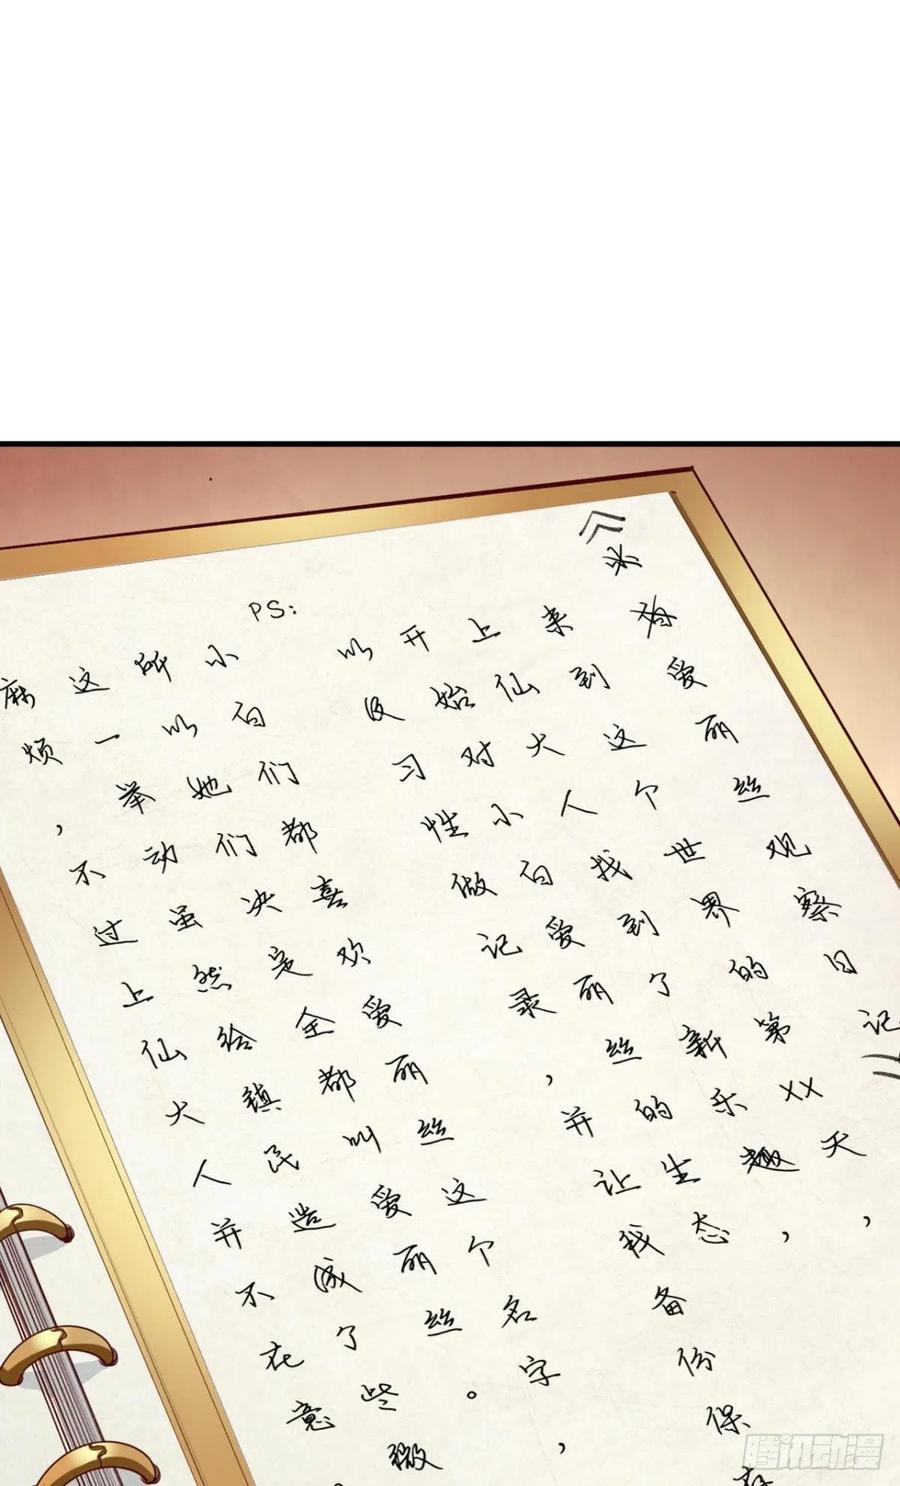 《爱丽丝观察日记》
来到这个世界的第XX天，
上仙大人找到了新的乐趣，
开始对小白爱丽丝的生态，
以及习性做记录，并让我备份保存
PS：
小白们都喜欢爱丽丝这个名字，
所以她们决定全都叫爱丽丝。
这一举动虽然给镇民造成了些微
麻烦，不过上仙大人并不在意
腾讯动漫